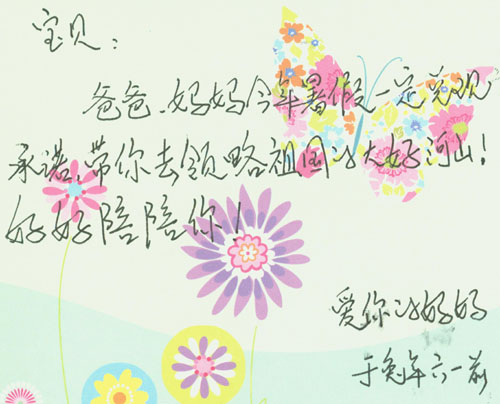 宝贝：
爸爸、妈妈今年暑假一定兑现
承诺，带你去领略祖国的大好河山！
好好陪陪你！
爱你的妈妈
于兔年六一前